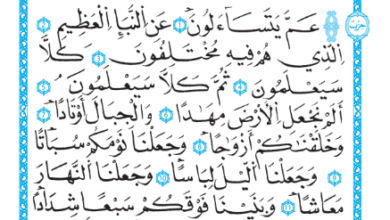 حزب
عَمَّ يَتَسَآءَلُونَ ١ عَنِ ٱلنَّبَإِ ٱلْعَظِيمِ ٢
ٱلَّذِي هُمْ فِيهِ مُخْتَلِفُونَ ٣ كَلَّا
سَيَعْلَمُونَ ٤ ثُمَّ كَلَّا سَيَعْلَمُونَ ٥
أَلَمْ نَجْعَلِ ٱلْأَرْضَ مِهَٰدًا ٦ وَٱلْجِبَالَ أَوْتَادًا ٧
وَخَلَقْنَٰكُمْ أَزْوَٰجًا ٨ وَجَعَلْنَا نَوْمَكُمْ سُبَاتًا
٩ وَجَعَلْنَا ٱلَّيْلَ لِبَاسًا ١٠ وَجَعَلْنَا ٱلنَّهَارَ
مَعَاشًا ١١ وَبَنَيْنَا فَوْقَكُمْ سَبْعًا شِدَادًا